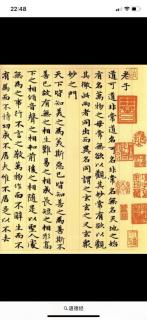 22:48
老子
道可道非常道名可名非常名無名天地之始
有名萬物之母常無欲以觀其妙常有欲以觀
其徼此兩者同出而異名同謂之玄玄之又玄眾
妙之門
天下皆知美之為美斯惡已皆知善之為善斯不
善已故有無之相生難易之相成長短之相形高
下之相傾音聲之相和前後之相隨是以聖人處
無為之事行不言之教萬物作而不辭生而不
有為而不恃功成不居夫唯不居是以不去
道德经